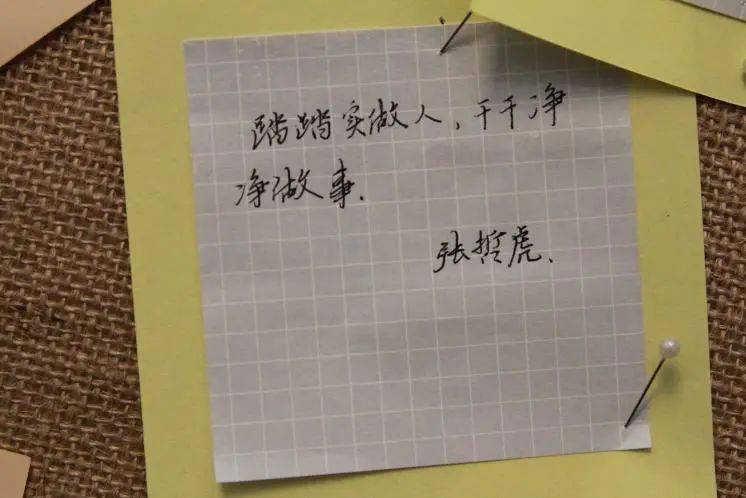 踏踏实做人，干干净
净做事.
张哲虎.